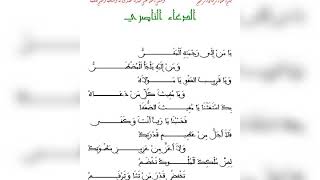 الدعاء الناصري
يَا مَنْ إِلَى رَحْمَتِهِ الْمَفَرُّ
وَمَنْ إِلَيْهِ يَلْجَأُ الْمُضْطَرُّ
وَيَا قَرِيبَ الْعَفْوِ يَا مَوْلَاهُ
وَيَا مُغِيثَ كُلِّ مَنْ دَعَاهُ
بِكَ اسْتَغَثْنَا يَا مُغِيثَ الضُّعَفَا
فَحَسْبُنَا يَا رَبِّ أَنْتَ وَكَفَى
فَلَا أَجَلَّ مِنْ عَظِيمِ قُدْرَتِكْ
وَلَا أَعَزَّ مِنْ عَزِيزِ سَطْوَتِكْ
لِعِزِّ مُلْكِكَ الْمُلُوكُ تَخْضَعُ
تَخْفِضُ قَدْرَ مَنْ تَشَا وَتَرْفَعُ